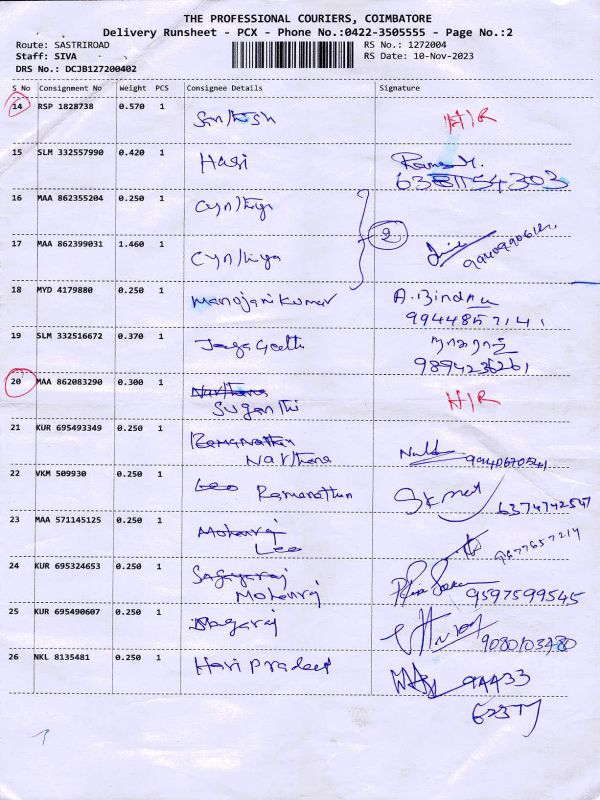 THE PROFESSIONAL COURIERS, COIMBATORE
Delivery Runsheet - PCX - Phone No.:0422-3505555 - Page No.:2
Route: SASTRIROAD RS No.: 1272004
Staff: SIVA RS Date: 10-Nov-2023
DRS No.: DCJB127200402
S No Consignment No Weight PCS Consignee Details Signature
14 RSP 1828738 0.570 1 H/R
15 SLM 332557990 0.420 1 Hari
16 MAA 862355204 0.250 1
2
17 MAA 862399031 1.460 1
18 MYD 4179880 0.250 1 Manojan kumar A. Bindhu
9944857141
19 SLM 332516672 0.370 1 Jaya Geetha நாகராஜ்
9894236261
20 MAA 862083290 0.300 1 Narthana H/R
Suganthi
21 KUR 695493349 0.250 1 Ramanathan
Narthana
22 VKM 509930 0.250 1 Leo Ramanathan
6374742547
23 MAA 571145125 0.250 1 Mohanraj 9677657214
Leo
24 KUR 695324653 0.250 1 Sagayaraj
Mohanraj 9597599545
25 KUR 695490607 0.250 1 Nagaraj
26 NKL 8135481 0.250 1 Hari Pradeep 94433